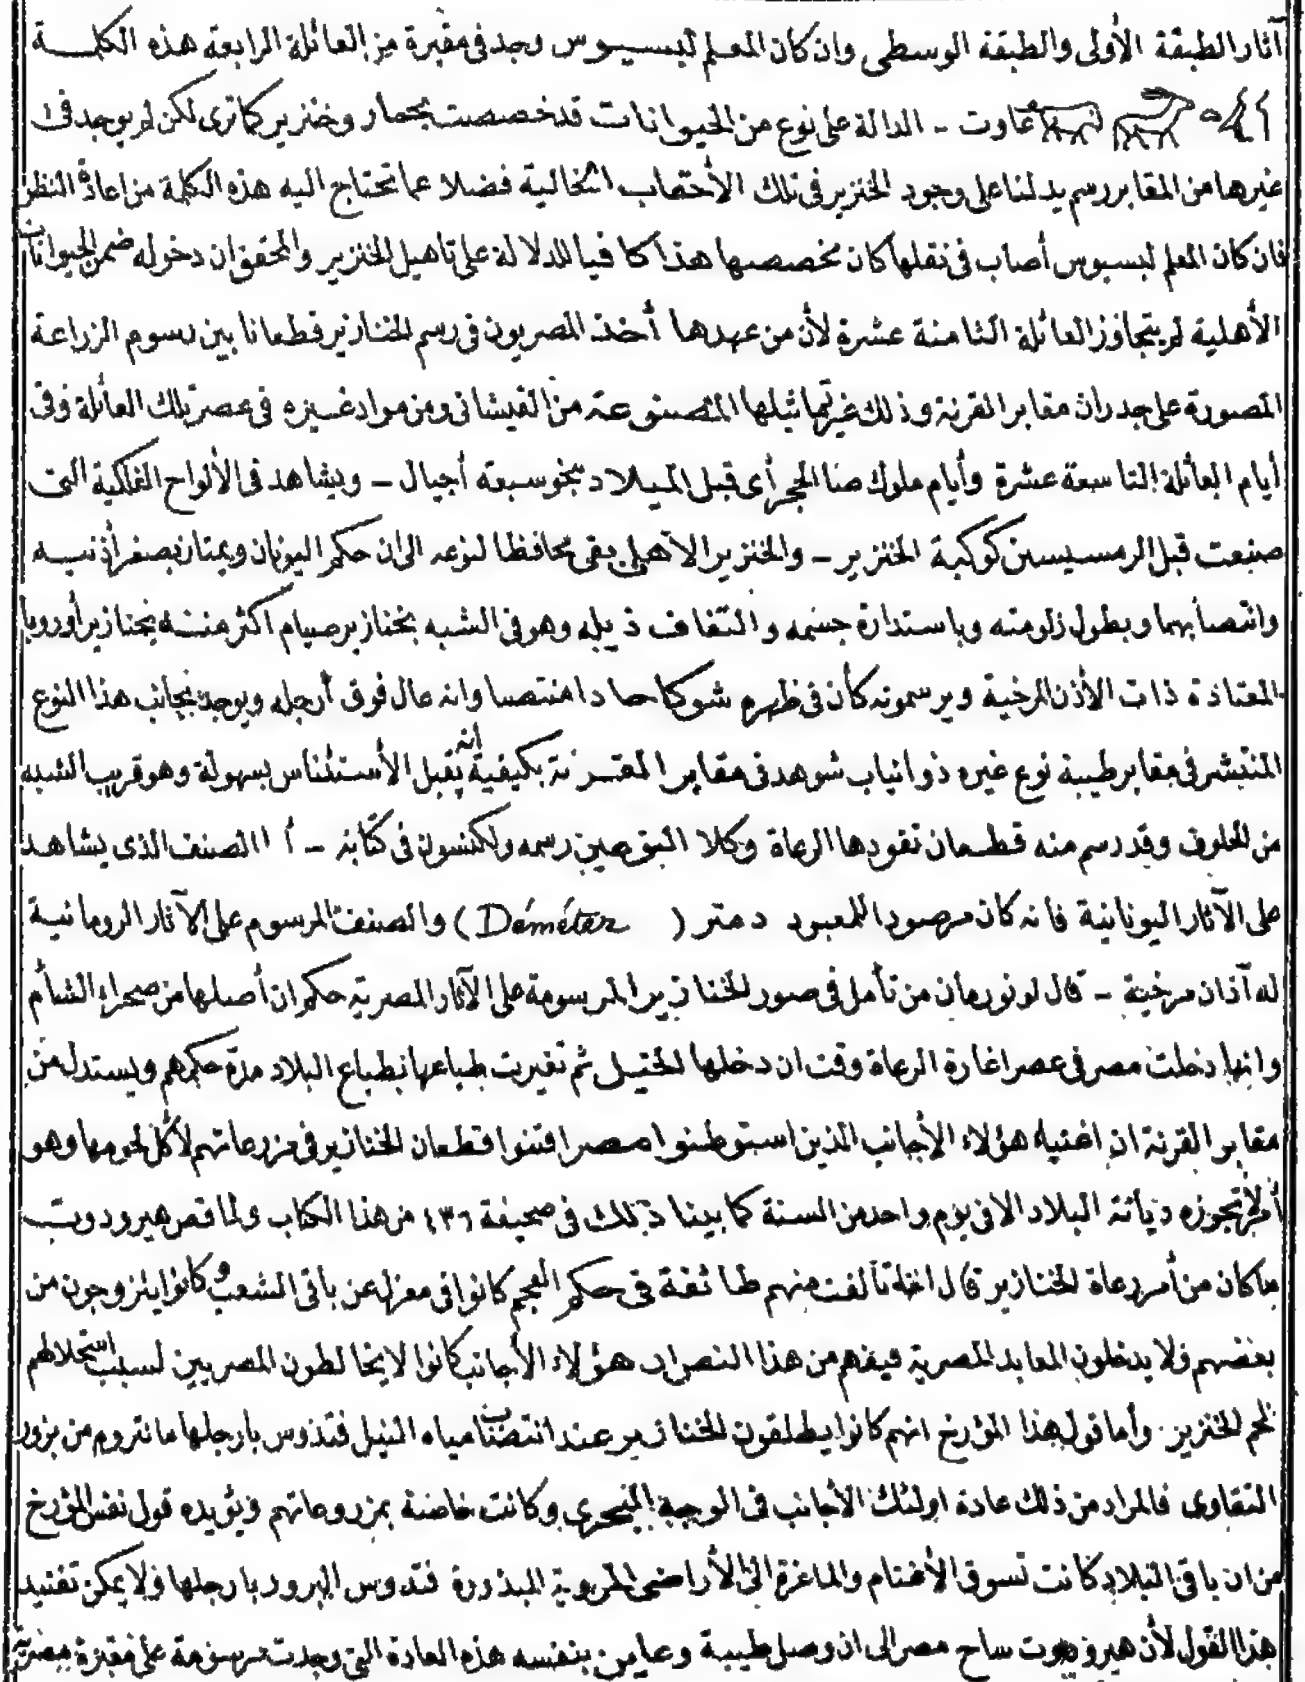 آثار الطبقة الأولى والطبقة الوسطى وان كان المعلم لبسيوس وجد فى مقبرة من العائلة الرابعة هذه الكلمة
عاوت - الدالة على نوع من الحيوانات قد خصصت بحمار وخنزير كما ترى لكن لم يوجد فى
غيرها من المقابر رسم يدلنا على وجود الخنزير فى تلك الأحقاب الخالية فضلا عما تحتاج اليه هذه الكلمة من اعادة النظر
فان كان المعلم لبسيوس أصاب فى نقلها كان مخصصها هذا كافيا للدلالة على تاهيل الخنزير والمحقق ان دخوله ضمن الحيوانات
الأهلية لم يتجاوز العائلة الثامنة عشرة لأن من عهدها أخذ المصريون فى رسم الخنازير قطعانا بين رسوم الزراعة
المصورة على جدران مقابر القرنة وذلك غير تماثيلها المصنوعة من القيشانى ومن مواد غيره فى عصر تلك العائلة وفى
أيام العائلة التاسعة عشرة وأيام ملوك صا الحجر أى قبل الميلاد بنحو سبعة أجيال - ويشاهد فى الألواح الفلكية التى
صنعت قبل الرمسيسين كوكبة الخنزير - والخنزير الأهلى بقى محافظا لنوعه الى ان حكم اليونان ويمتاز بصغر أذنيه
وانتصابهما وبطول زلومته وباستدارة جسمه والتفاف ذيله وهو فى الشبه بخنازير صيام اكثر منه بخنازير أوروبا
المعتادة ذات الأذن المرخية ويرسمونه كأن فى ظهره شوكا حادا منتصبا وانه عال فوق أرجله ويوجد بجانب هذا النوع
المنتشر فى مقابر طيبة نوع غيره ذو انياب شوهد فى مقابر القرنة بكيفية انه يقبل الأستئناس بسهولة وهو قريب الشبه
من الحلوف وقد رسم منه قطعان تقودها الرعاة وكلا النوعين رسمه ولكنسون فى كتابه - أما الصنف الذى يشاهد
على الآثار اليونانية فانه كان مرصودا للمعبود دمتر (Déméter) والصنف المرسوم على الآثار الرومانية
له آذان مرخية - قال لونورمان من تأمل فى صور الخنازير المرسومة على الآثار المصرية حكم ان أصلها من صحراء الشأم
وانها دخلت مصر فى عصر اغارة الرعاة وقت ان دخلها الخيل ثم تغيرت طباعها بطباع البلاد مدة حكمهم ويستدل من
مقابر القرنة ان اغنياء هؤلاء الأجانب الذين استوطنوا مصر اقتنوا قطعان الخنازير فى مزرعاتهم لأكل لحومها وهو
أمر لم تجوزه ديانة البلاد الا فى يوم واحد من السنة كما بينا ذلك فى صحيفة ٤٣٦ من هذا الكتاب ولما قص هيرودوت
ما كان من أمر رعاة الخنازير قال انه تألفت منهم طائفة فى حكم العجم كانوا فى معزل عن باقى الشعب وكانوا يتزوجون من
بعضهم ولا يدخلون المعابد المصرية فيفهم من هذا النص ان هؤلاء الأجانب كانوا لا يخالطون المصريين لسبب استحلالهم
لحم الخنزير وأما قول هذا المؤرخ انهم كانوا يطلقون الخنازير عند انتضاب مياه النيل فتدوس بارجلها ما تروم من بزور
التقاوى فالمراد من ذلك عادة اولئك الأجانب فى الوجه البحرى وكانت خاصة بمزروعاتهم ويؤيده قول نفس المؤرخ
من ان باقى البلاد كانت تسوق الأغنام والماعزة الى الأراضى المروية المبذورة فتدوس البزور بارجلها ولا يمكن تفنيد
هذا القول لأن هيرودوت ساح مصر الى ان وصل طيبة وعاين بنفسه هذه العادة التى وجدت مرسومة على مقبرة مصرية